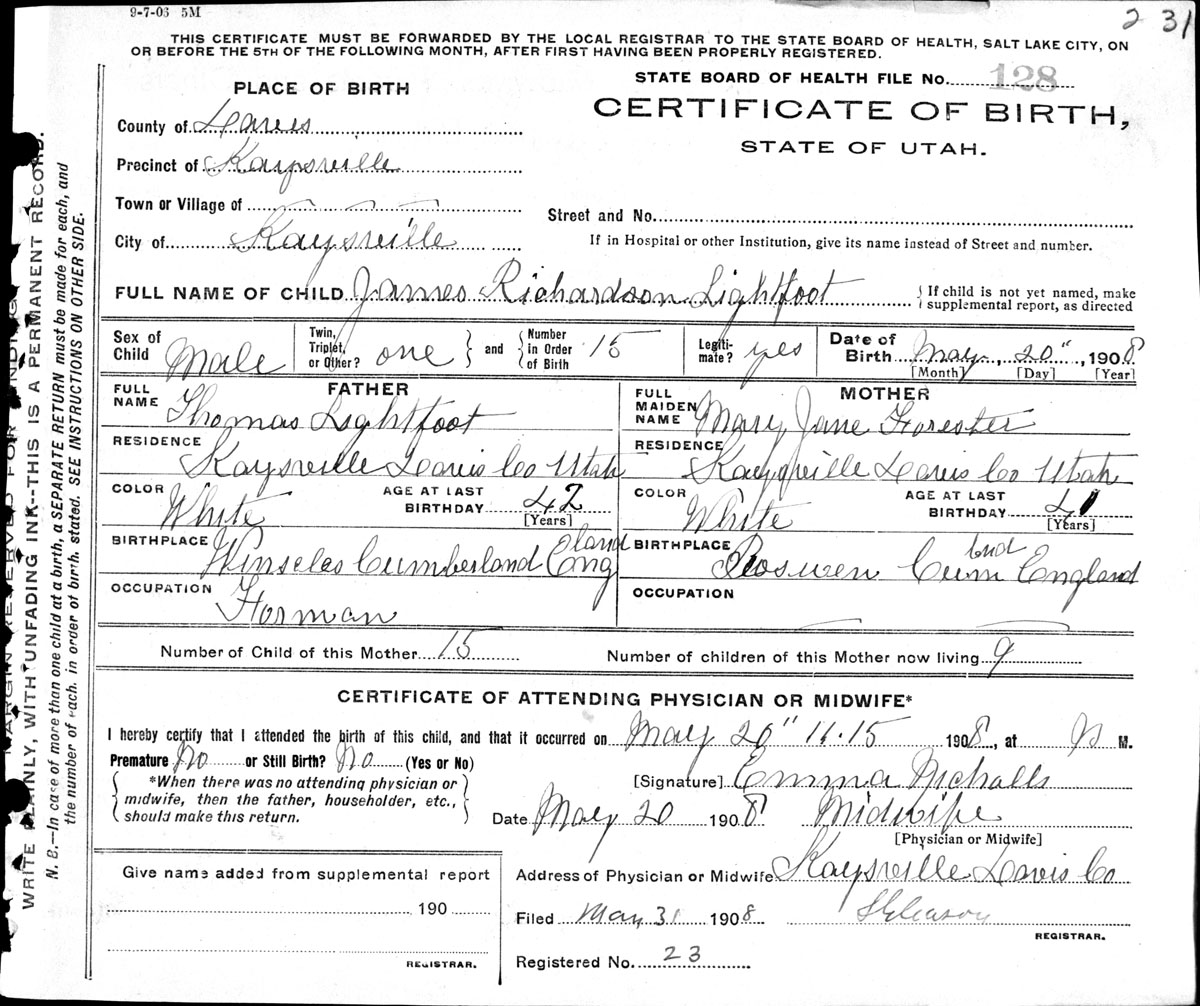 9-7-06 5M
2 31
THIS CERTIFICATE MUST BE FORWARDED BY THE LOCAL REGISTRAR TO THE STATE BOARD OF HEALTH, SALT LAKE CITY, ON
OR BEFORE THE 5TH OF THE FOLLOWING MONTH, AFTER FIRST HAVING BEEN PROPERLY REGISTERED.
STATE BOARD OF HEALTH FILE No. 128
CERTIFICATE OF BIRTH,
STATE OF UTAH.
PLACE OF BIRTH
County of Davis
Precinct of Kaysville
Town or Village of
City of Kaysville
Street and No.
If in Hospital or other Institution, give its name instead of Street and number.
FULL NAME OF CHILD James Richardson Lightfoot { If child is not yet named, make
supplemental report, as directed
Sex of Child Male
Twin, Triplet, or Other? one } and { Number in Order of Birth 15
Legiti-mate? yes
Date of Birth May, 20", 1908
[Month] [Day] [Year]
FATHER
FULL NAME Thomas Lightfoot
RESIDENCE Kaysville Davis Co Utah
COLOR White AGE AT LAST BIRTHDAY 42
[Years]
BIRTHPLACE Cumberland England
OCCUPATION Forman
MOTHER
FULL MAIDEN NAME Mary Jane Forester
RESIDENCE Kaysville Davis Co Utah
COLOR White AGE AT LAST BIRTHDAY 41
[Years]
BIRTHPLACE Cumbnd England
OCCUPATION
Number of Child of this Mother 15 Number of children of this Mother now living 9
CERTIFICATE OF ATTENDING PHYSICIAN OR MIDWIFE*
I hereby certify that I attended the birth of this child, and that it occurred on May 20" 11.15 1908, at M.
Premature No or Still Birth? No (Yes or No)
{ *When there was no attending physician or
midwife, then the father, householder, etc.,
should make this return. }
[Signature] Emma Nicholls
Date May 20 1908 Midwife
[Physician or Midwife]
Give name added from supplemental report
190
REGISTRAR.
Address of Physician or Midwife Kaysville Davis Co
Filed May 31 1908 Gleason
REGISTRAR.
Registered No. 23
MARGIN RESERVED FOR BINDING
WRITE PLAINLY, WITH UNFADING INK--THIS IS A PERMANENT RECORD.
N. B.—In case of more than one child at a birth, a SEPARATE RETURN must be made for each, and
the number of each. in order of birth. stated. SEE INSTRUCTIONS ON OTHER SIDE.